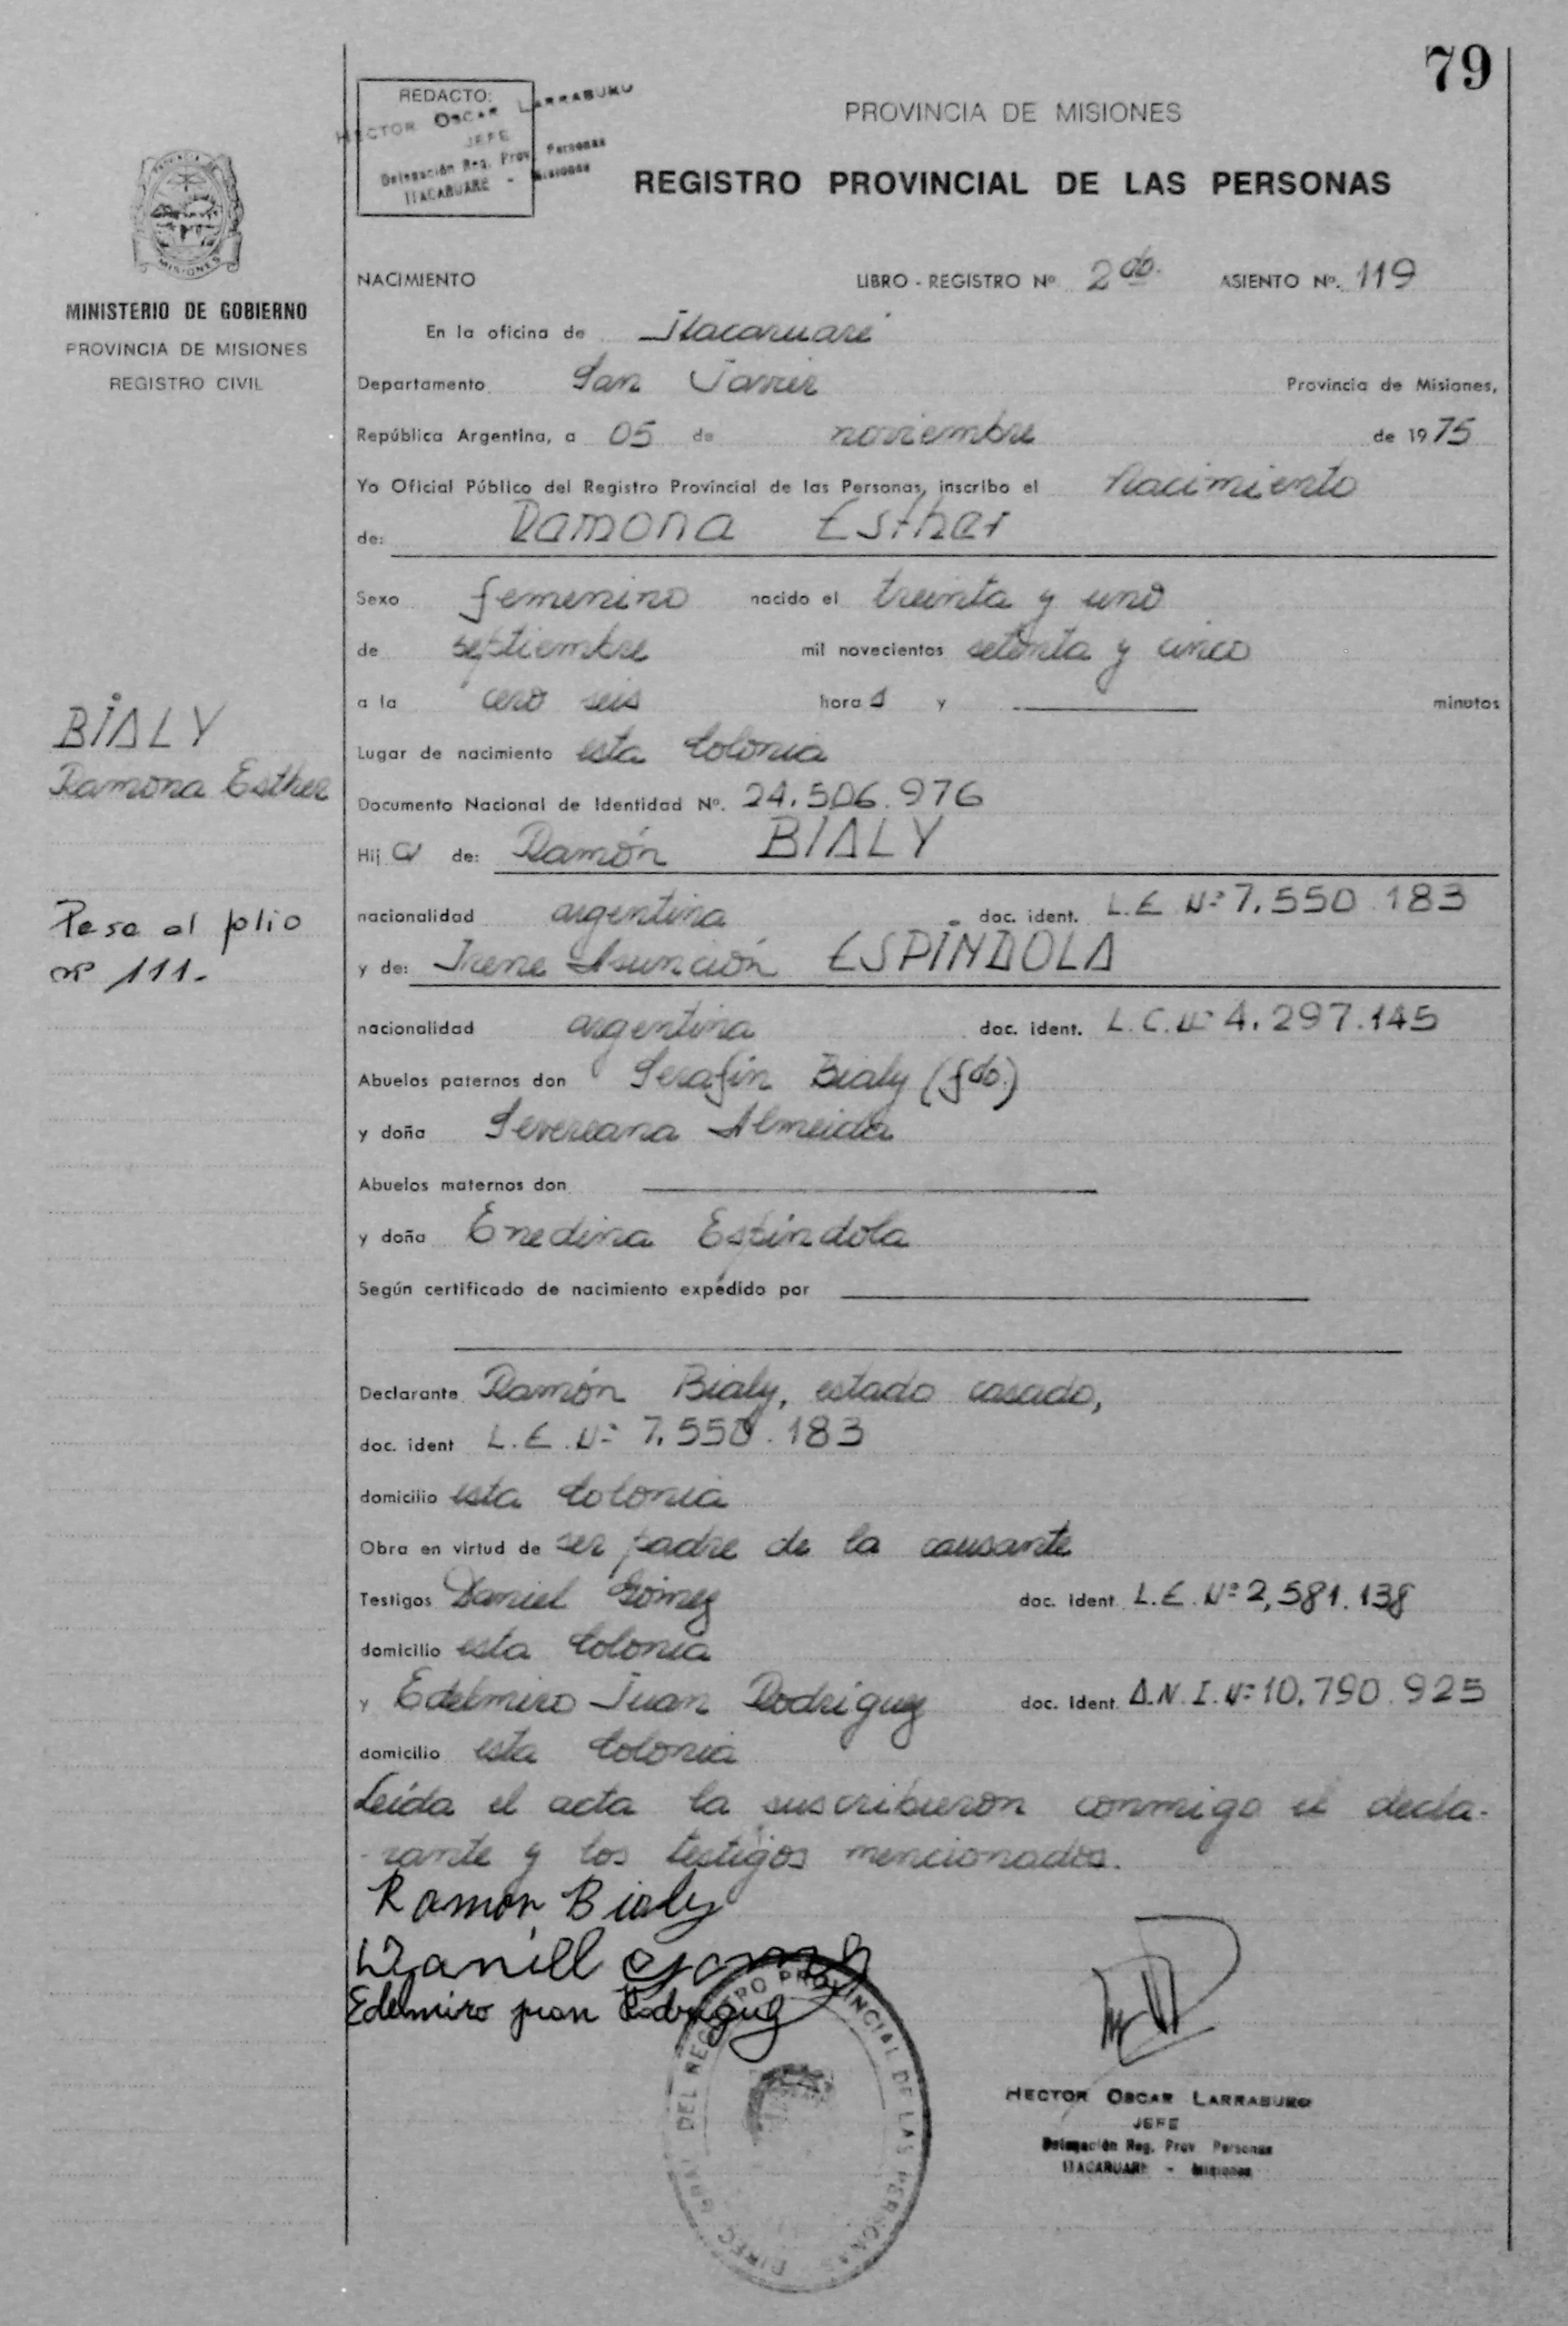 79
REDACTO:
HECTOR OSCAR LARRABURO
JEFE
Delegación Reg. Prov. Personas
ITACARUARE - Misiones
PROVINCIA DE MISIONES
REGISTRO PROVINCIAL DE LAS PERSONAS
MISIONES
MINISTERIO DE GOBIERNO
PROVINCIA DE MISIONES
REGISTRO CIVIL
NACIMIENTO LIBRO - REGISTRO Nº 2do. ASIENTO Nº. 119
En la oficina de Itacaruaré
Departamento San Javier Provincia de Misiones,
República Argentina, a 05 de noviembre de 1975
Yo Oficial Público del Registro Provincial de las Personas, inscribo el Nacimiento
de: Ramona Esther
Sexo femenino nacido el treinta y uno
de septiembre mil novecientos setenta y cinco
a la cero seis hora s y minutos
BIALY
Ramona Esther
Lugar de nacimiento esta Colonia
Documento Nacional de Identidad Nº. 24.506.976
Hij a de: Ramón BIALY
Pasa al folio
nº 111.-
nacionalidad argentina doc. ident. L.E Nº 7.550.183
y de: Irene Asunción ESPÍNDOLA
nacionalidad argentina doc. ident. L.C. Nº 4.297.145
Abuelos paternos don Serafín Bialy (fdo.)
y doña Severeana Almeida
Abuelos maternos don
y doña Enedina Espíndola
Según certificado de nacimiento expedido por
Declarante Ramón Bialy, estado casado,
doc. ident L.E. Nº 7.550.183
domicilio esta Colonia
Obra en virtud de ser padre de la causante
Testigos Daniel Gómez doc. ident L.E. Nº 2,581.138
domicilio esta Colonia
y Edelmiro Juan Rodríguez doc. Ident D.N.I. Nº 10.790.925
domicilio esta Colonia
Leída el acta la suscribieron conmigo el decla-
-rante y los testigos mencionados.
Ramon Bialy
Daniell Gomez
Edelmiro juan Rodriguez
DIREC. GRAL. DEL REGISTRO PROVINCIAL DE LAS PERSONAS
HECTOR OSCAR LARRABURO
JEFE
Delegación Reg. Prov Personas
ITACARUARE - Misiones